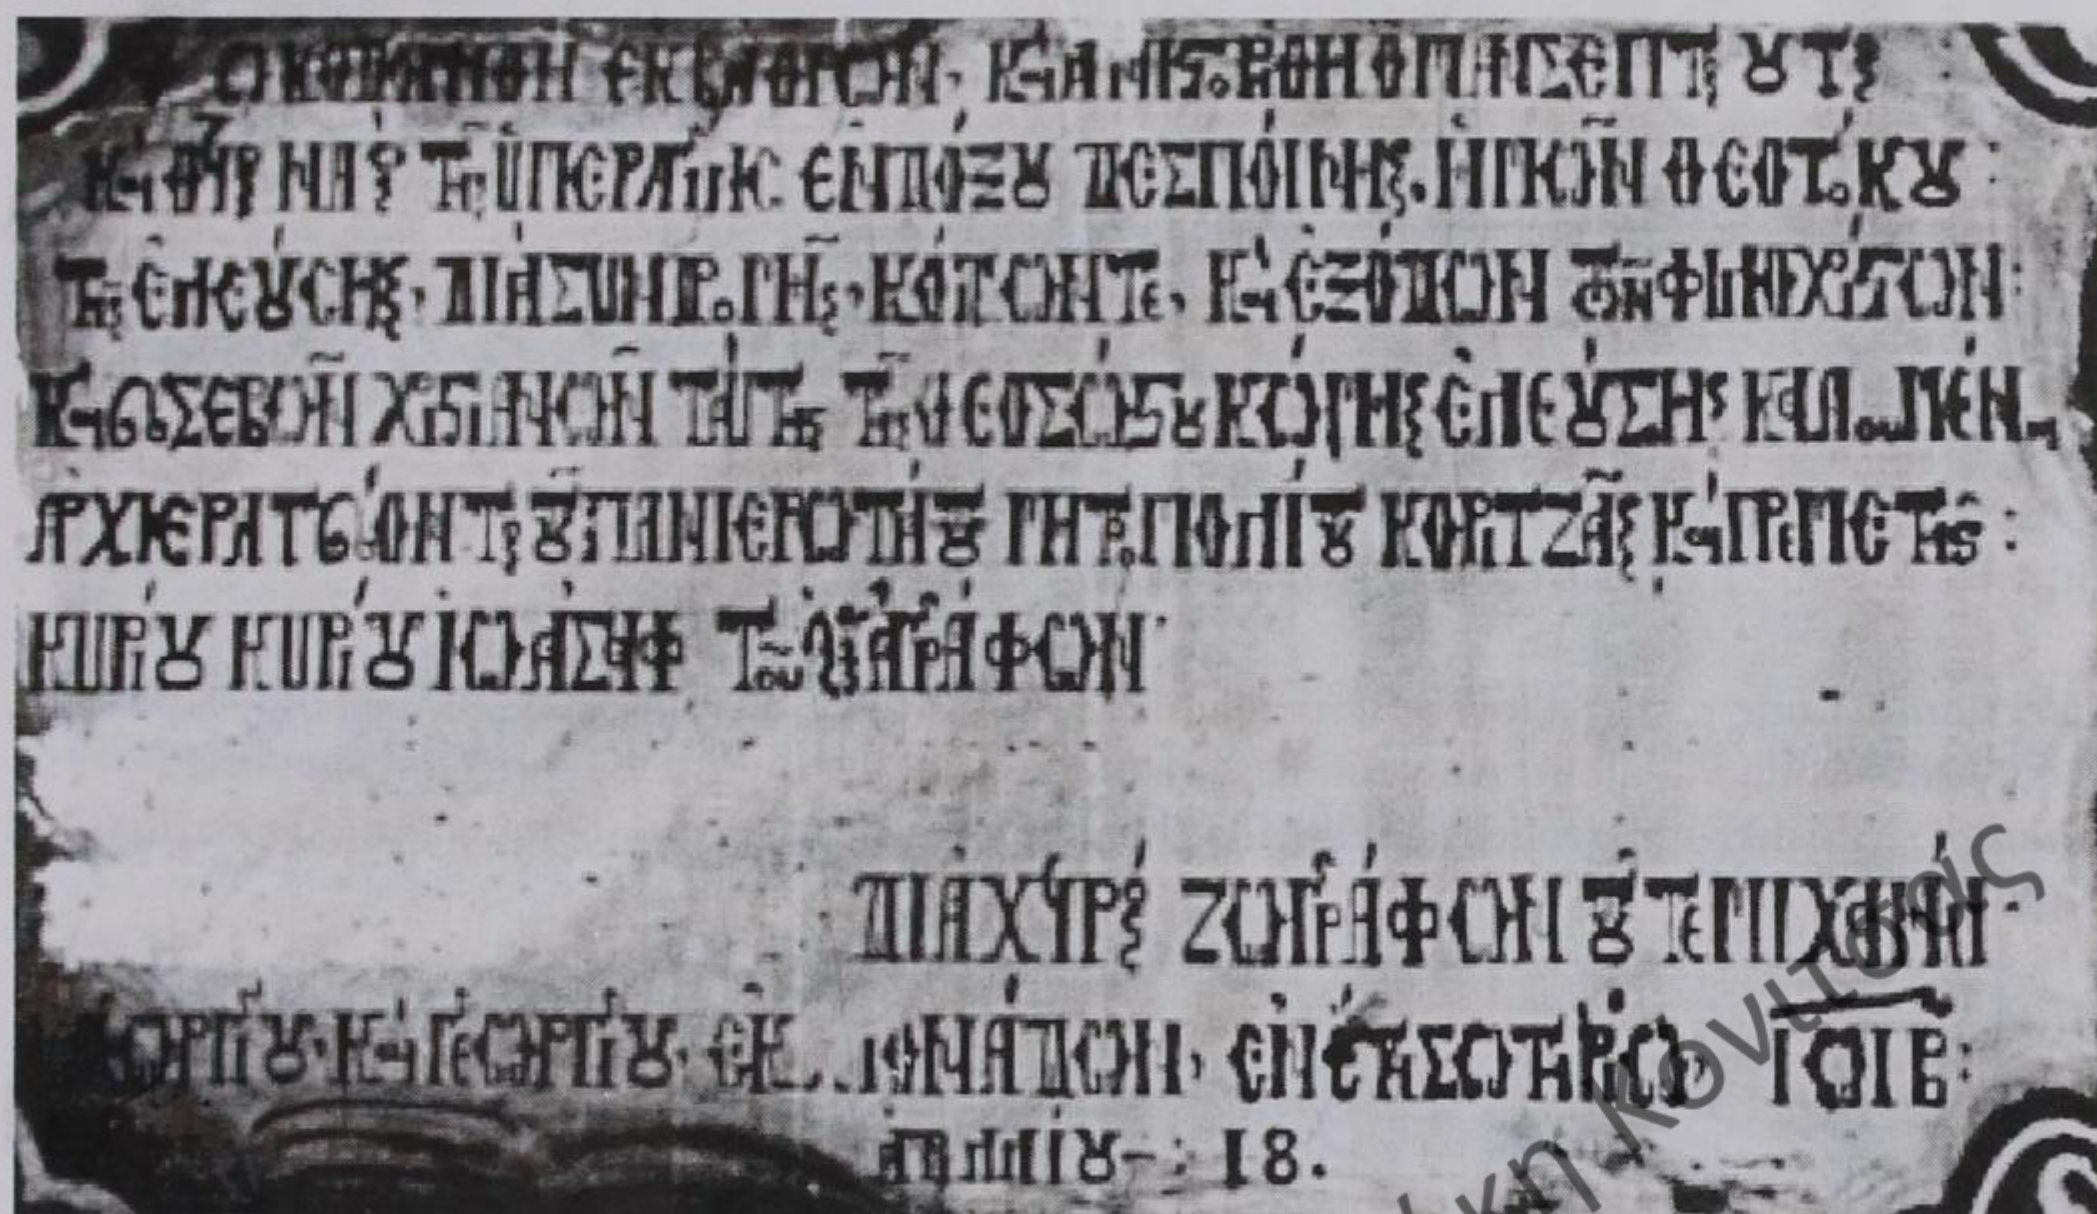 ΟΙΚΟΔΟΜΗΘΗ ΕΚ ΒΑΘΡΩΝ, Κ(ΑΙ) ΑΝΙΣΤΟΡΗΘΗ Ο ΠΑΝΣΕΠΤΟΣ ΟΥΤΟΣ
Κ(ΑΙ) ΘΕΙΟΣ ΝΑΟΣ ΤΗΣ ὙΠΕΡΑΓΙΑΣ ΕΝΔΌΞΟΥ ΔΕΣΠΟΊΝΗΣ, ἩΜΩ͂Ν ΘΕΟΤΌΚΟΥ :
ΤΗΣ ἘΛΕΟΎΣΗΣ, ΔΙᾺ ΣΥΝΔΡΟΜΗ͂Σ, ΚΌΠΩΝ ΤΕ, Κ(ΑΙ) ἘΞΌΔΩΝ ΤΩ͂Ν ΦΙΛΟΧΡΊΣΤΩΝ :
Κ(ΑΙ) ΕΥΣΕΒΩ͂Ν ΧΡΙΣΤΙΑΝΩ͂Ν ΤῊΣ ΘΕΟΣΏΣΤΟΥ ΚΏΜΗΣ ἘΛΕΟΎΣΗΣ ΚΑΛΟΥΜΈΝΗ,
ἈΡΧΙΕΡΑΤΕΎΟΝΤΟΣ ΤΟΥ͂ ΠΑΝΙΕΡΩΤΆΤΟΥ ΜΗΤΡΟΠΟΛΊΤΟΥ ΚΟΡΙΤΖΑ͂Σ Κ(ΑΙ) ΠΡΕΜΕΤΗ͂Σ :
ΚΥΡΊΟΥ ΚΥΡΊΟΥ ἸΩΆΣΑΦ ΤΟΥ͂ ἘΞ ἈΓΡΆΦΩΝ
ΔΙᾺ ΧΕΙΡΌΣ ΖΩΓΡΆΦΩΝ ΤΟΥ͂ ΤΕ ΜΙΧΑΉΛ
ΓΕΩΡΓΊΟΥ, Κ(ΑΙ) ΓΕΩΡΓΊΟΥ, ἘΚ ΧΙΟΝΆΔΩΝ, ἘΝ ἜΤΗ ΣΩΤΗΡΊΩ, ΙΩΙΒ :
ἈΠΡΙΛΛΊΟΥ – : 18.